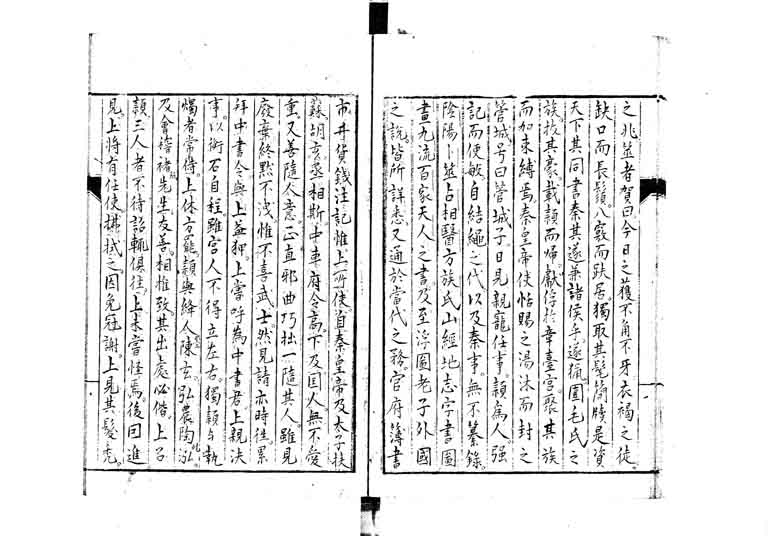 之兆筮者賀曰今日之獲不角不牙衣褐之徒
缺口而長鬚八竅而趺居獨取其髦簡牘是資
天下其同書秦其遂兼諸侯乎遂獵圍毛氏之
族拔其豪載穎而歸獻俘於章臺宮聚其族
而加束縛焉秦皇帝使恬賜之湯沐而封之
管城号曰管城子日見親寵任事穎爲人强
記而便敏自結繩之代以及秦事無不纂錄
陰陽卜筮占相醫方族氏山經地志字書圖
畫九流百家天人之書及至浮圖老子外國
之說皆所詳悉又通於當代之務官府簿書
市井貨錢注記惟上所使自秦皇帝及太子扶
蘇胡亥丞相斯中車府令高下及国人無不愛
重又善隨人意正直邪曲巧拙一隨其人雖見
廢棄終黙不洩惟不喜武士然見請亦時徃累
拜中書令與上益狎上嘗呼為中書君上親决
事以衡石自程雖宮人不得立左右獨穎与執
燭者常侍上休方罷穎與絳人陳玄弘農陶泓
及會稽褚先生友善相推致其出處必偕上召
穎三人者不待詔輒俱往上未嘗怪焉後因進
見上將有任使拂拭之因免冠謝上見其髮禿